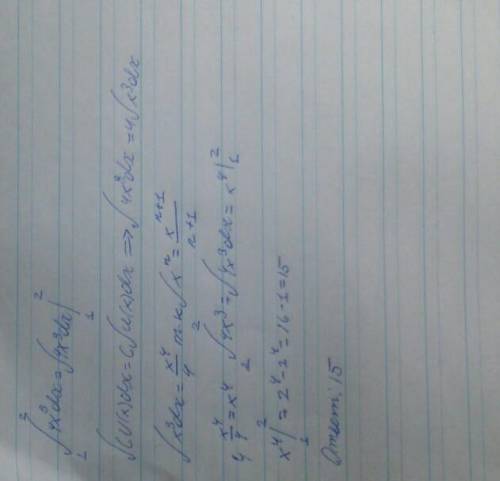 ∫₁² 4x³dx = ∫4x³dx|₁²
∫CU(x)dx = C∫U(x)dx => ∫4x³dx = 4∫x³dx
∫x³dx = x⁴/4 т.к ∫xⁿ = xⁿ⁺¹/n+1
4 x⁴/4 = x⁴ ∫₁² 4x³ = ∫4x³dx = x⁴|₁²
x⁴|₁² = 2⁴ - 1⁴ = 16 - 1 = 15
Ответ: 15